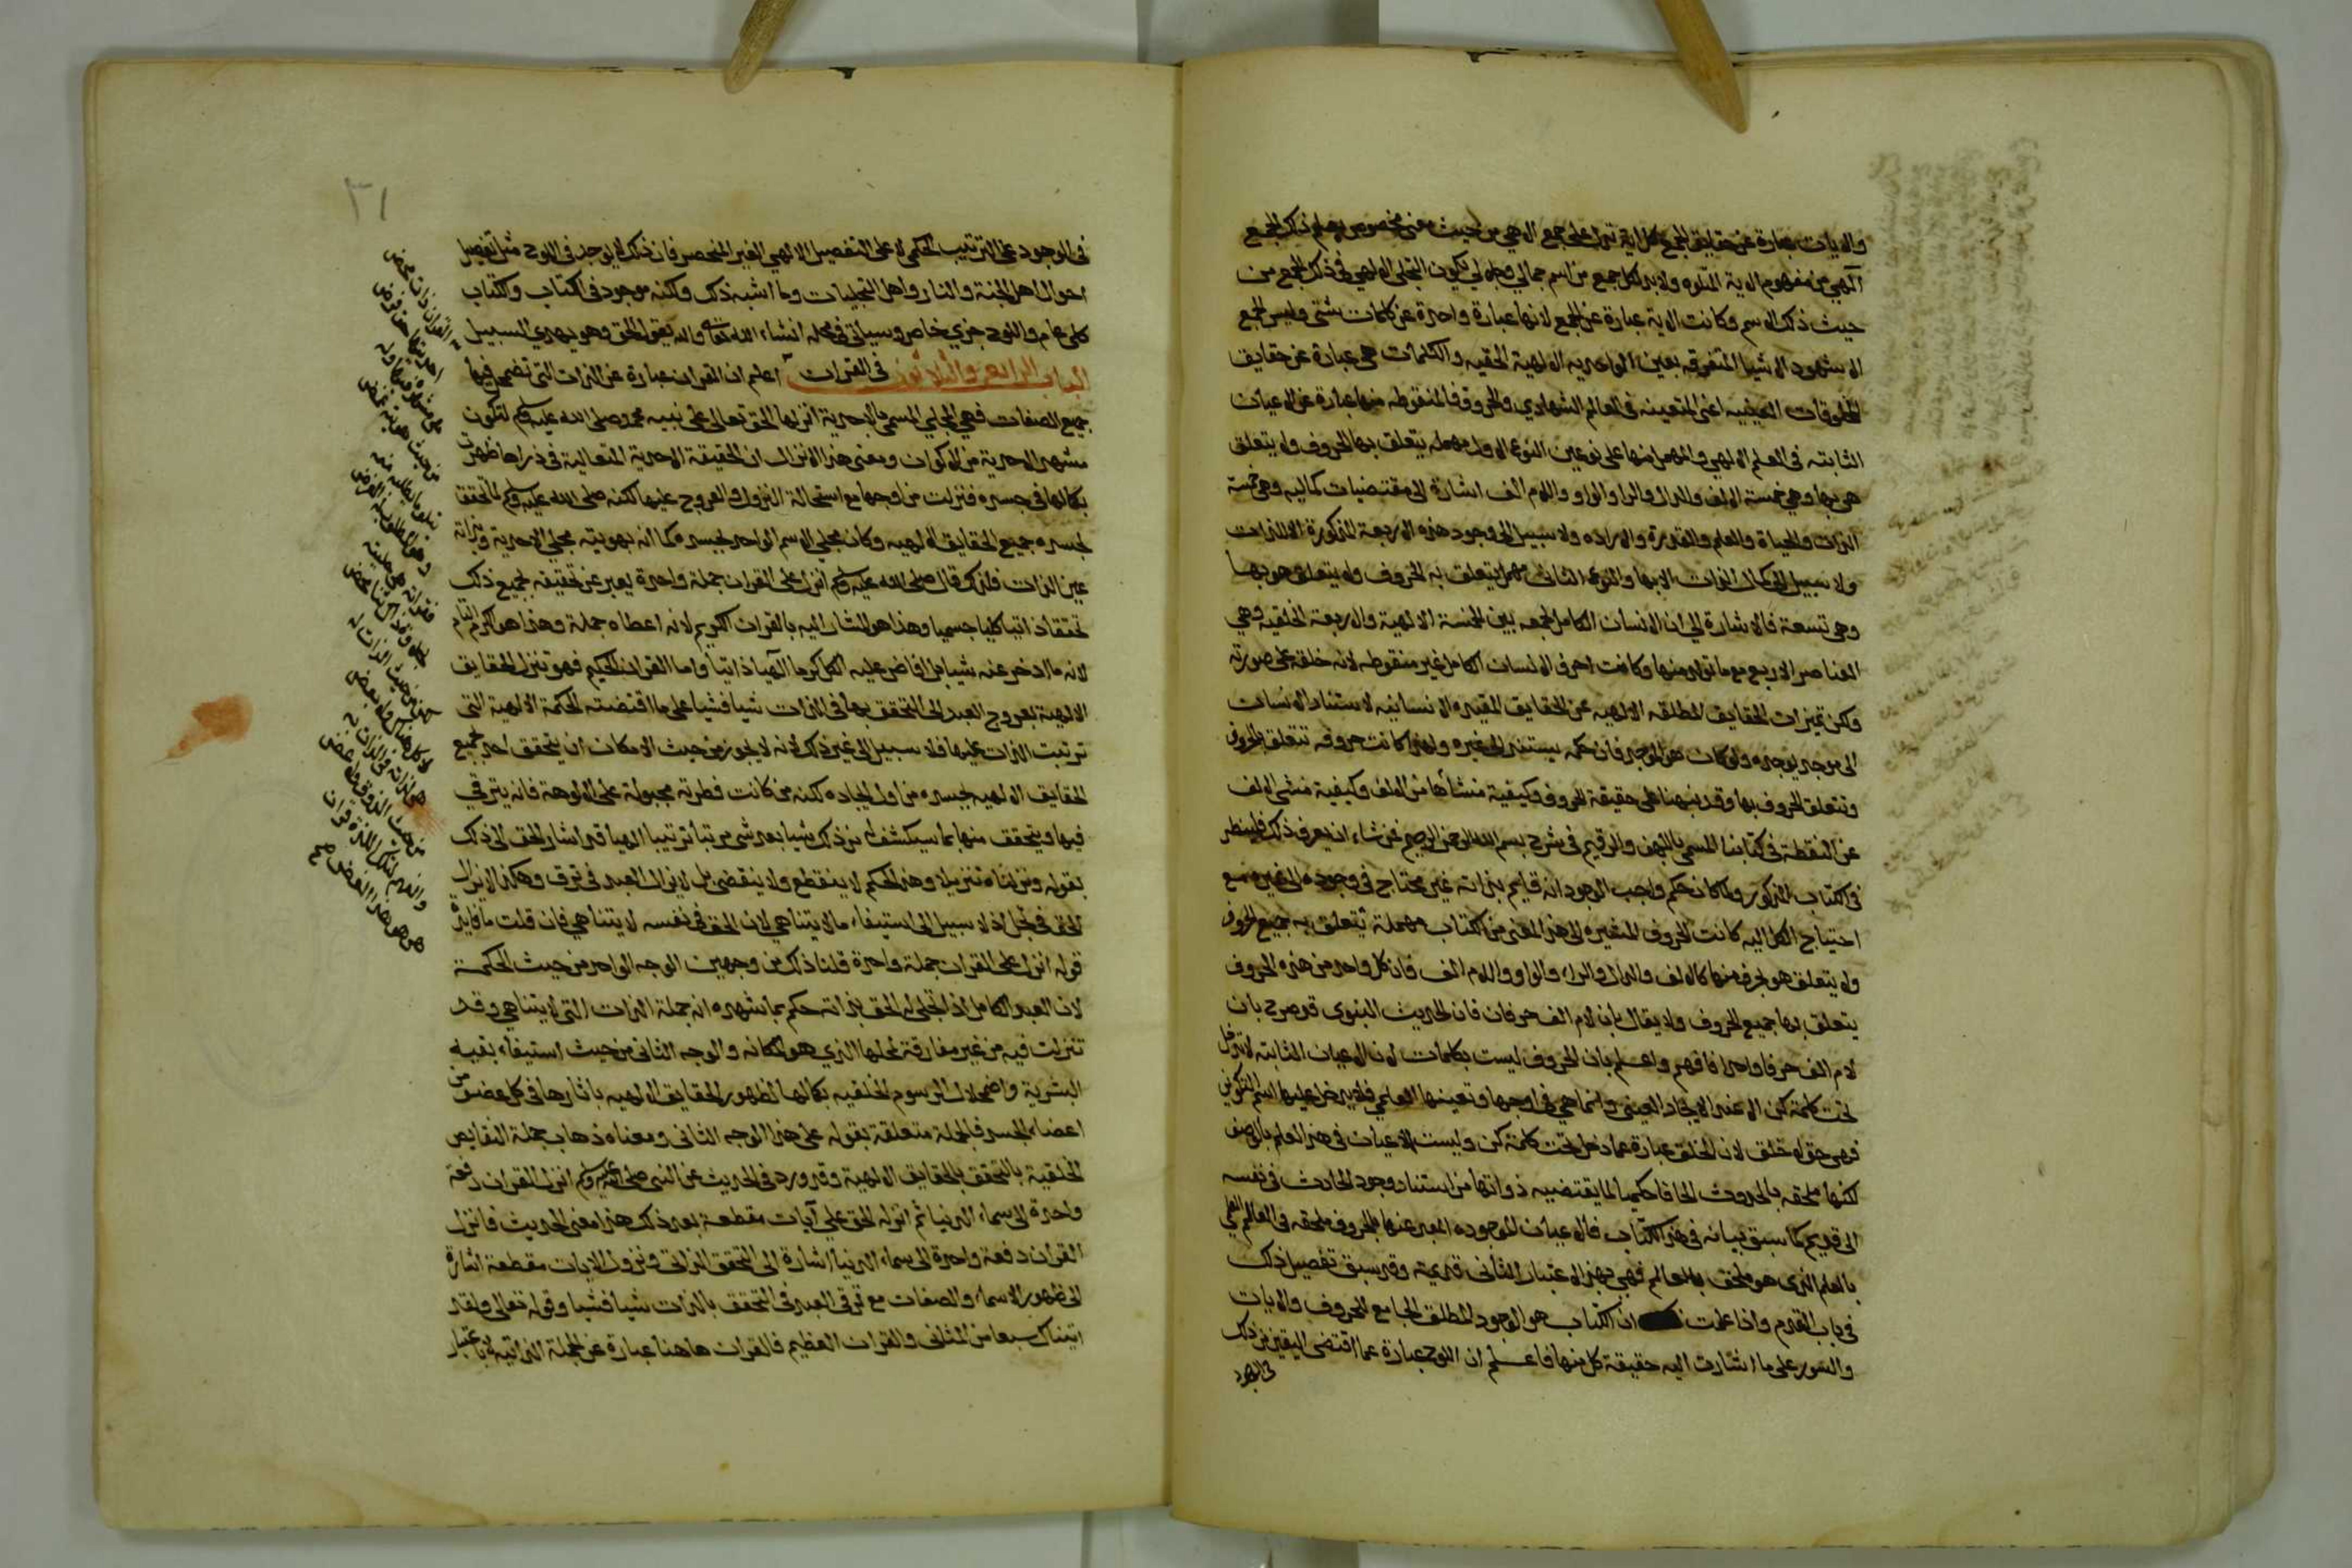 والايات عبارة عن حقايق الجمع كل اية تدل على جمع الهي من حيث معنى مخصوص يعلم ذلك الجمع
الآلهي من مفهوم الاية المتلوه ولابد لكل جمع من اسم جمالي وجلالي يكون التجلى الالهي في ذلك الجمع من
حيث ذلك الاسم وكانت الاية عبارة عن الجمع لانها عبارة واحدة عن كلمات شتى وليس الجمع
الا شهود الاشيا المتفرقه بعين الواحديه الالهية الحقيه والكلمات هى عبارة عن حقايق
المخلوقات العينيه اعنى المتعينه في العالم الشهادي والحروف فالمنقوطه منها عبارة عن الاعيان
الثابته في العلم الالهي والمهمل منها على نوعين النوع الاول مهمله يتعلق بها الحروف ولا يتعلق
هي بها وهي خمسة الالف والدال والرا والواو واللام الف اشارة الى مقتضيات كماليه وهي خمسة
الذات والحياة والعلم والقدرة والاراده ولا سبيل الى وجود هذه الاربعة المذكورة الا للذات
ولا سبيل الى كمال الذات الا بها والنوع الثانى مهمل يتعلق به الحروف ولا يتعلق هو بها
وهي تسعة فالاشارة الى ان الانسان الكامل لجمعه بين الخمسة الالهية والاربعة الخلقيه وهي
العناصر الاربع مع ما تولد منها وكانت احرف الانسان الكامل غير منقوطه لانه خلقه على صورته
ولكن تميزت الحقايق المطلقه الالهيه عن الحقايق المقيده الانسانيه لاستناد الانسان
الى موجد يوجده ولو كان هو الموجد فان حكمه يستند الى غيره ولهذا كانت حروفه تتعلق بالحروف
وتتعلق الحروف بها وقد نبهنا على حقيقة الحروف وكيفية منشأها من الالف وكيفية منشى الالف
عن النقطة في كتابنا المسمى بالكهف والرقيم في شرح بسم الله الرحمن الرحيم فمن شاء ان يعرف ذلك فلينظر
في الكتاب المذكور ولما كان حكم واجب الوجود انه قايم بذاته غير محتاج في وجوده الى غيره مع
احتياج الكل اليه كانت الحروف المشيره الى هذا المعنى من الكتاب مهملة تتعلق به جميع الحروف
ولا يتعلق هو بحرف منها كالالف والدال والراء والواو واللام الف فان كل واحد من هذه الحروف
يتعلق بها جميع الحروف ولا يقال بان لام الف حرفان فان الحديث النبوى قد صرح بان
لام الف حرفا واحدا فافهم واعلم بان الحروف ليست بكلمات لان الاعيان الثابته لا تدخل
تحت كلمة كن الا عند الايجاد العينى وانما هي في اوجها وتعينها العلمي فلا يدخل عليها اسم التكوين
فهي حق لا خلق لان الخلق عبارة عما دخل تحت كلمة كن وليست الاعيان في هذا العلم بالوصف
لكنها ملحقه بالحدوث الحاقا حكميا لما يقتضيه ذواتها من استناد وجود الحادث في نفسه
الى قديم كما سبق بيانه في هذا الكتاب فالاعيان الموجوده المعبر عنها بالحروف ملحقه في العالم العلمي
بالعلم الذى هو ملحق بالعالم فهي بهذا الاعتبار الثانى قديمة وقد سبق تفصيل ذلك
في باب القدم واذا علمت ان الكتاب هو الوجود المطلق الجامع للحروف والايات
والسور على ما اشارت اليه حقيقة كل منها فاعلم ان اللوح عبارة عما اقتضى اليقين من ذلك
في الوجود
٣١
في الوجود على الترتيب الحكمي لا على التفصيل الالهي الغير المنحصر فان ذلك لا يوجد في اللوح مثل تفصيل
احوال اهل الجنة والنار واهل التجليات وما اشبه ذلك ولكنه موجود في الكتاب والكتاب
كلى عام واللوح جزي خاص وسياتى في محله انشاء الله تعالى والله يقول الحق وهو يهدي السبيل
الباب الرابع والثلاثون في القرآن اعلم ان القران عبارة عن الذات التى تضمحل فيها
جميع الصفات فهي المجلي المسمى بالاحدية انزلها الحق تعالى على نبيه محمد صلى الله عليه وسلم لتكون
مشهد الاحدية من الاكوان ومعنى هذا الانزال ان الحقيقة الاحدية المتعالية في ذراها ظهرت
بكمالها في جسده فنزلت من اوجها مع استحالة النزول والعروج عليها لكنه صلى الله عليه وسلم لما تحقق
بجسده جميع الحقايق الالهيه وكان مجلي الاسم الواحد بجسده كما انه بهويته مجلي الاحدية وبذاته
عين الذات فلذلك قال صلى الله عليه وسلم انزل على القران جملة واحدة يعبر عن تحقيقه بجميع ذلك
تحققا ذاتيا كليا جسميا وهذا هو المشار اليه بالقران الكريم لانه اعطاه جملة وهذا هو الكرم التام
لانه ما ادخر عنه شيا بل افاض عليه الكل كرما آلهيا ذاتيا واما القران الحكيم فهو تنزل الحقايق
الالهية بعروج العبد الى التحقق بها في الذات شيا فشيا على ما اقتضته الحكمة الالهية التى
ترتبت الذات عليها فلا سبيل الى غير ذلك لانه لا يجوز من حيث الامكان ان يتحقق احد بجميع
الحقايق الالهيه بجسده من اول ايجاده لكنه من كانت فطرته مجبولة على الالوهة فانه يترقي
فيها ويتحقق منها بما سيكشف له من ذلك شيا بعد شى مرتبا ترتيبا الهيا وقد اشار الحق الى ذلك
بقوله ونزلناه تنزيلا وهذا الحكم لا ينقطع ولا ينقضى بل لا يزال العبد في ترق وهكذا لا يزال
الحق في تجل اذ لا سبيل الى استيفاء ما لا يتناهي لان الحق في نفسه لا يتناهي فان قلت ما فايدة
قوله انزل على القران جملة واحدة قلنا ذلك من وجهين الوجه الواحد من حيث الحكمة
لان العبد الكامل اذا تجلى له الحق بذاته حكم بما شهده انه جملة الذات التى لا يتناهي وقد
تنزلت فيه من غير مفارقة لمحلها الذي هو المكانه والوجه الثانى من حيث استيفاء بقيه
البشرية واضمحلال الرسوم الخلقيه بكمالها لظهور الحقايق الالهيه باثارها في كل عضو من
اعضاء الجسد فالجملة متعلقة بقوله على هذا الوجه الثانى ومعناه ذهاب جملة النقايص
الخلقية بالتحقق بالحقايق الالهية وقد ورد في الحديث عن النبى صلى الله عليه وسلم انزل القران دفعة
واحدة الى سماء الدنيا ثم انزله الحق علي آيات مقطعة بعد ذلك هذا معنى الحديث فانزال
القران دفعة واحدة الى سماء الدنيا اشارة الى التحقق الذاتي ونزول الايات مقطعة اشارة
الى ظهور الاسماء والصفات مع ترقي العبد في التحقق بالذات شيا فشيا وقوله تعالى ولقد
اتيناك سبعا من المثانى والقران العظيم فالقران هاهنا عبارة عن الجملة الذاتيه لا باعتبار